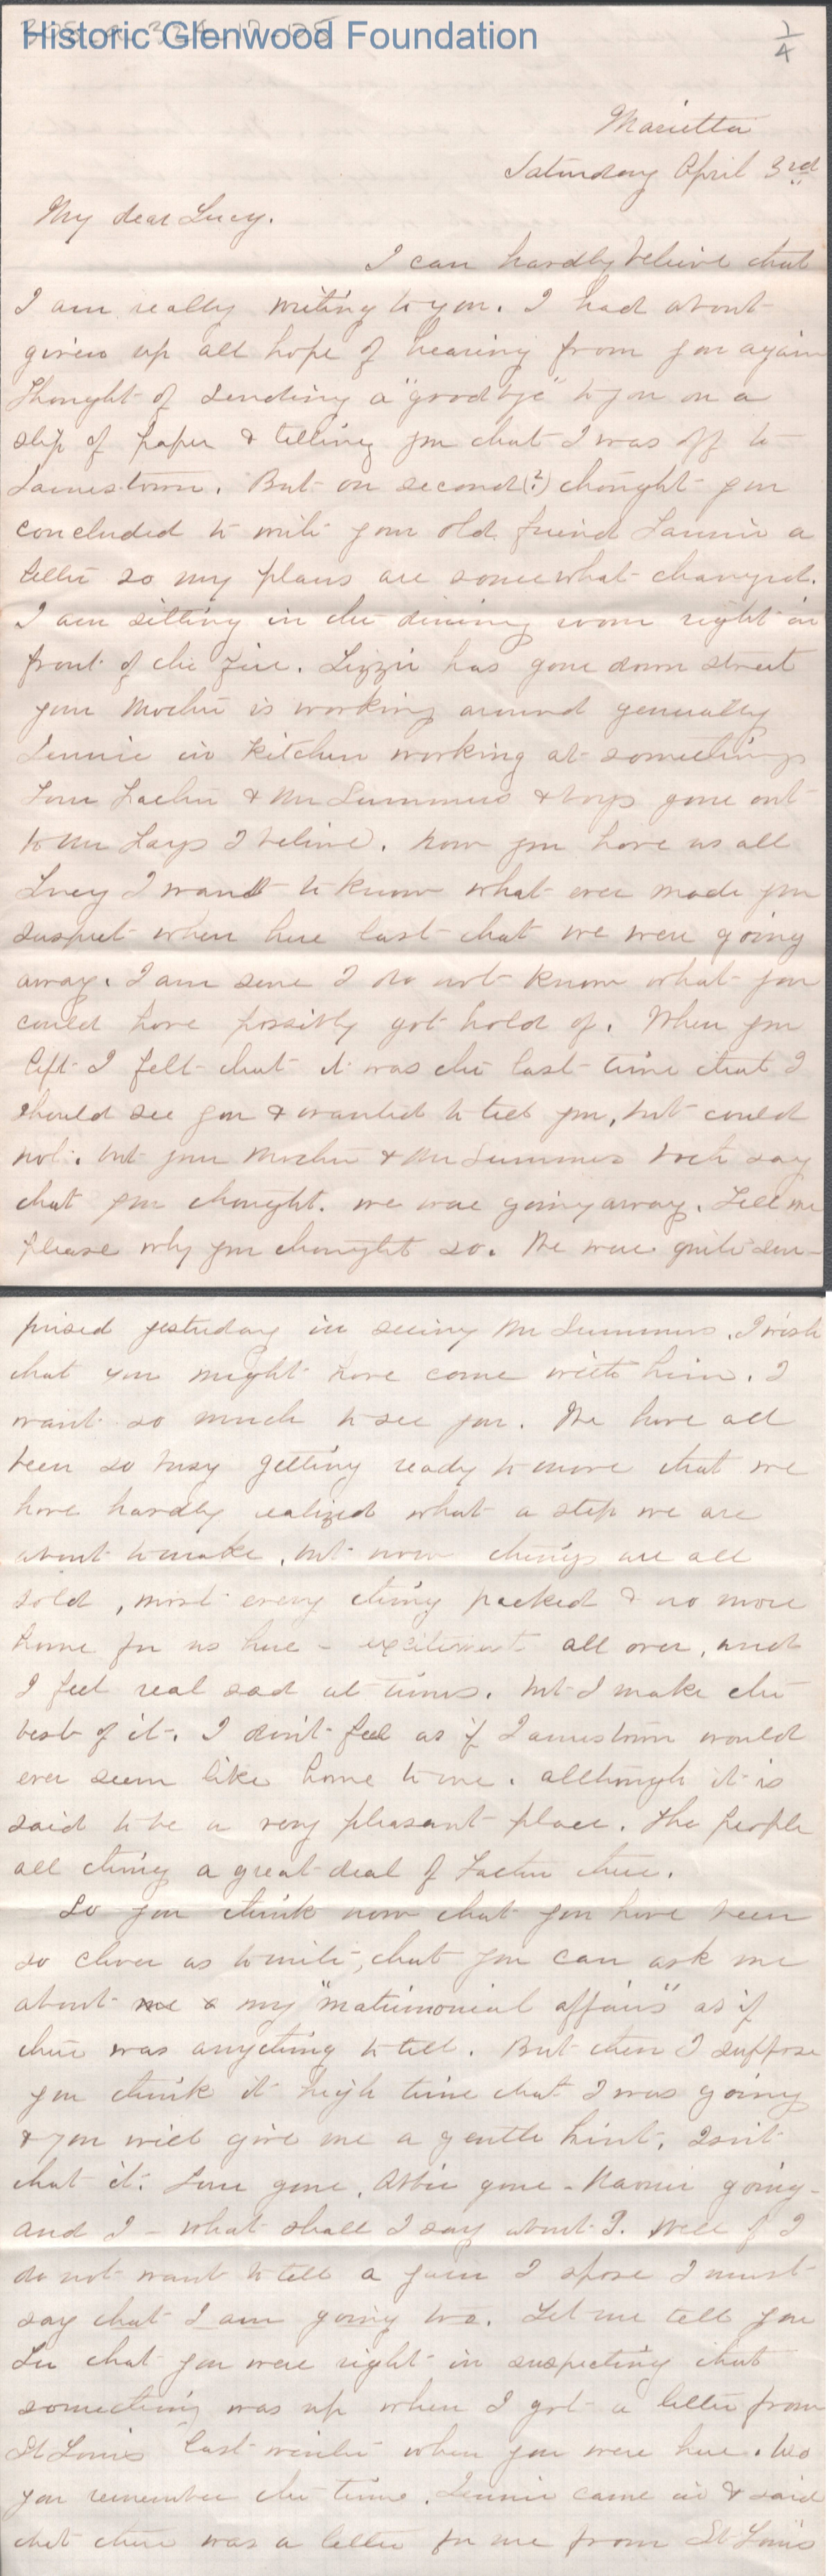 Historic Glenwood Foundation
1/4
Marietta
Saturday April 3rd
My dear Lucy.
I can hardly believe that
I am really writing to you. I had about
given up all hope of hearing from you again
thought of sending a "goodbye" to you on a
slip of paper & telling you that I was off to
Jamestown. But on second(?) thought you
concluded to write your old friend Fannie a
letter so my plans are somewhat changed.
I am sitting in the dining room right in
front of the fire. Lizzie has gone down street
your Mother is working around generally
Jennie in kitchen working at something
Your Father & Mr Summers & boys gone out
to Mr Lays I believe. Now you have us all
Lucy I want to know what ever made you
suspect when here last that we were going
away. I am sure I do not know what you
could have possibly got hold of. When you
left I felt that it was the last time that I
should see you & wanted to tell you, but could
not. but your Mother & Mr Summers both say
that you thought we were going away. Tell me
please why you thought so. We were quite sur-
prised yesterday in seeing Mr Summers. I wish
that you might have come with him. I
want so much to see you. We have all
been so busy getting ready to move that we
have hardly realized what a step we are
about to make, but now things are all
sold, most every thing packed & no more
home for us here - excitement all over, and
I feel real sad at times. but I make the
best of it. I don't feel as if Jamestown would
ever seem like home to me. allthough it is
said to be a very pleasant place. The people
all think a great deal of Father there.
So you think now that you have been
so clever as to write, that you can ask me
about me & my "matrimonial affairs" as if
there was anything to tell. But then I suppose
you think it high time that I was going
& you will give me a gentle hint. Isn't
that it. Lou gone, Abbie gone - Nannie going -
and I - what shall I say about I. Well if I
do not want to tell a I spose I must
say that I am going too. Let me tell you
Lu that you were right in suspecting that
something was up when I got a letter from
St Louis last winter when you were here. Do
you remember the time. Jennie came in & said
that there was a letter for me from St Louis